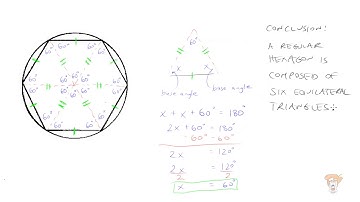 60° 60°
60° 60° 60° 60°
60° 60° 60°
60° 60° 60°
60° 60° 60° 60°
60° 60°
60°
x x
base angle base angle
x + x + 60° = 180°
2x + 60° = 180°
- 60° - 60°
2x = 120°
2x = 120°
2 2
x = 60°
CONCLUSION:
A REGULAR
HEXAGON IS
COMPOSED OF
SIX EQUILATERAL
TRIANGLES